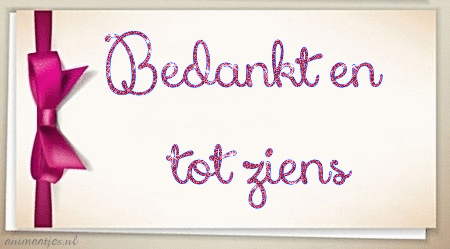 Bedankt en
tot ziens
animaatjes.nl